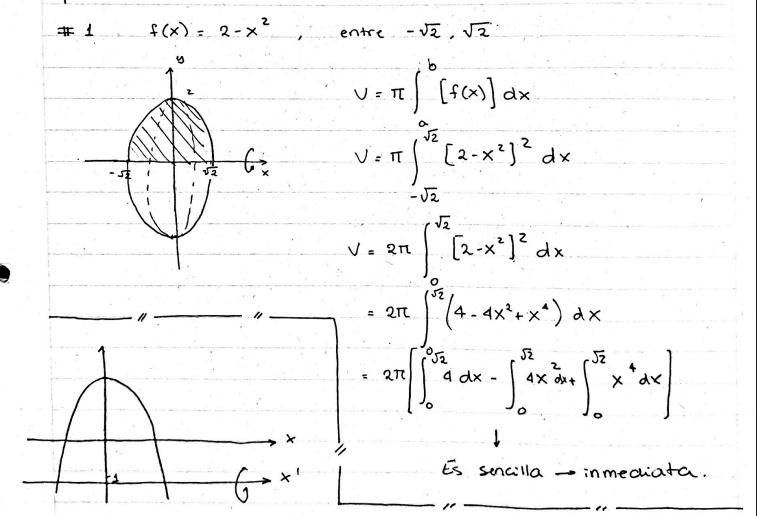 # 1 f(x) = 2 - x² , entre -√2 , √2
y
2
-√2 √2 x
V = π ∫ₐᵇ [f(x)] dx
V = π ∫_{-√2}^{√2} [2-x²]² dx
V = 2π ∫₀^{√2} [2-x²]² dx
= 2π ∫₀^{√2} (4 - 4x² + x⁴) dx
= 2π [ ∫₀^{√2} 4 dx - ∫₀^{√2} 4x² dx + ∫₀^{√2} x⁴ dx ]
↓
Es sencilla → inmediata.
x
-1 x'